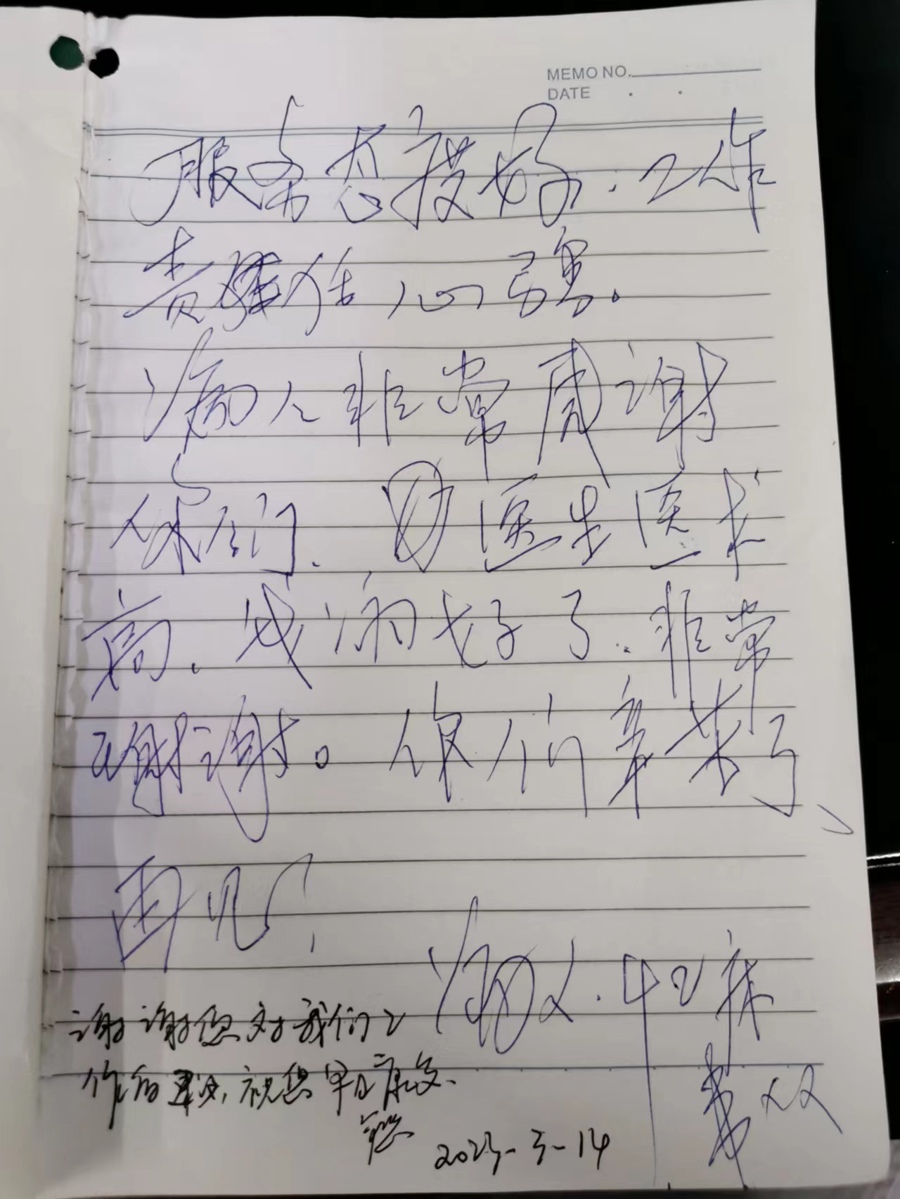 MEMO NO.
DATE
服务态度好.工作
责任心强。
病人非常感谢
你们.因医生医术
高.我病好了.非常
谢谢。你们辛苦了、
再见!
病人.42床
谢谢您对我们工
作的 祝您早日康复.
2023-3-14